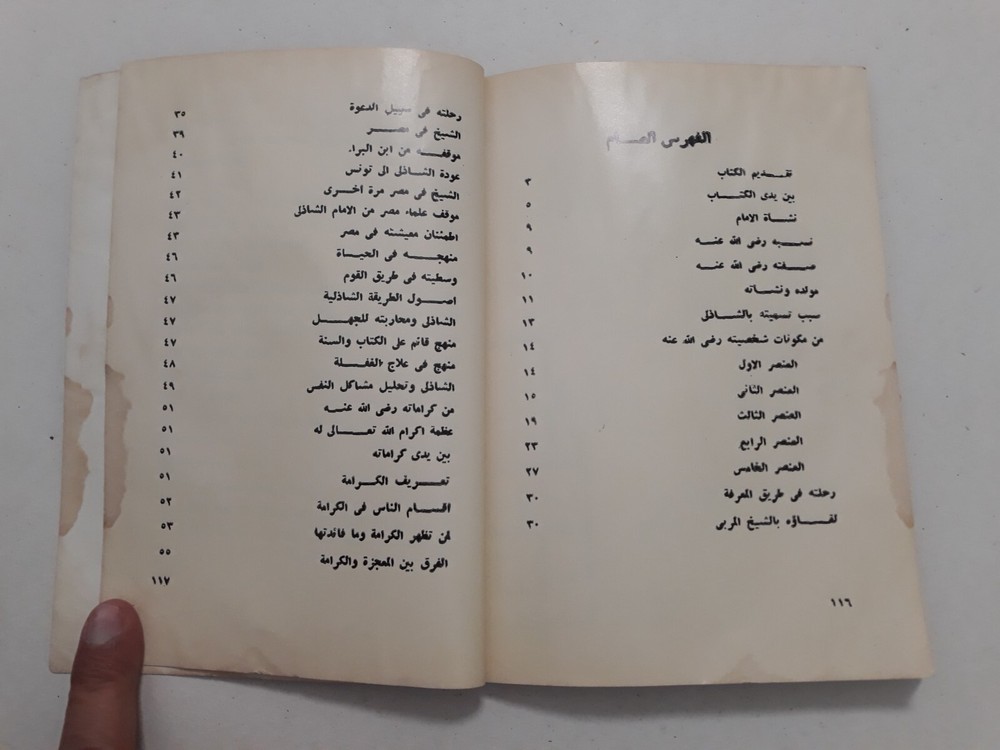 الفهرس العـــام
تقـديم الكتاب ٣
بين يدى الكتـــاب ٥
نشاة الامام ٩
نسـبه رضى الله عنـــه ٩
صـفته رضى الله عنـــه ١٠
مولده ونشـاته ١١
سبب تسميته بالشـــاذلى ١٣
من مكونات شخصيته رضى الله عنه ١٤
العنصر الاول ١٤
العنصر الثانى ١٥
العنصر الثالث ١٩
العنصر الرابع ٢٣
العنصر الخامس ٢٧
رحلته فى طريق المعرفة ٣٠
لقـــاؤه بالشيخ المربى ٣٠
١١٦
رحلته فى سبيل الدعوة ٣٥
الشيخ فى مصـــر ٣٩
موقفـــه من ابن البراء ٤٠
عودة الشاذلى الى تونس ٤١
الشيخ فى مصر مرة اخـرى ٤٢
موقف علماء مصر من الامام الشاذلى ٤٣
اطمئنان معيشته فى مصر ٤٣
منهجـــه فى الحيـاة ٤٦
وسطيته فى طريق القوم ٤٦
اصـول الطريقة الشاذلية ٤٧
الشاذلى ومحاربته للجهـــل ٤٧
منهج قائم على الكتاب والسنة ٤٧
منهج فى علاج الغفـــلة ٤٨
الشاذلى وتحليل مشاكل النفس ٤٩
من كراماته رضى الله عنـــه ٥١
عظمة اكرام الله تعـــالى له ٥١
بين يدى كراماته ٥١
تعـــريف الكـــرامة ٥١
اقســـام الناس فى الكرامة ٥٢
لمن تظهر الكرامة وما فائدتها ٥٣
الفرق بين المعجزة والكرامة ٥٥
١١٧